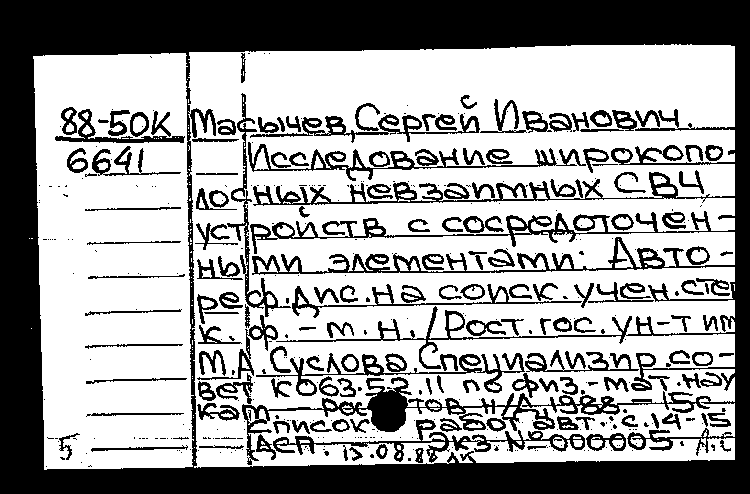 88-50К Масычев, Сергей Иванович.
6641 Исследование широкопо-
лосных невзаимных СВЧ
устройств с сосредоточен-
ными элементами: Авто-
реф. дис. на соиск. учен. степ
к. ф.-м. н. / Рост. гос. ун-т им
М.А. Суслова. Специализир. со-
вет К 063.52.11 по физ.-мат. нау
кам. — Рос тов н/Д, 1988. – 15с.
Список работ авт.: с. 14-15
5 ДСП. 15.08.88 Экз. № 000005.